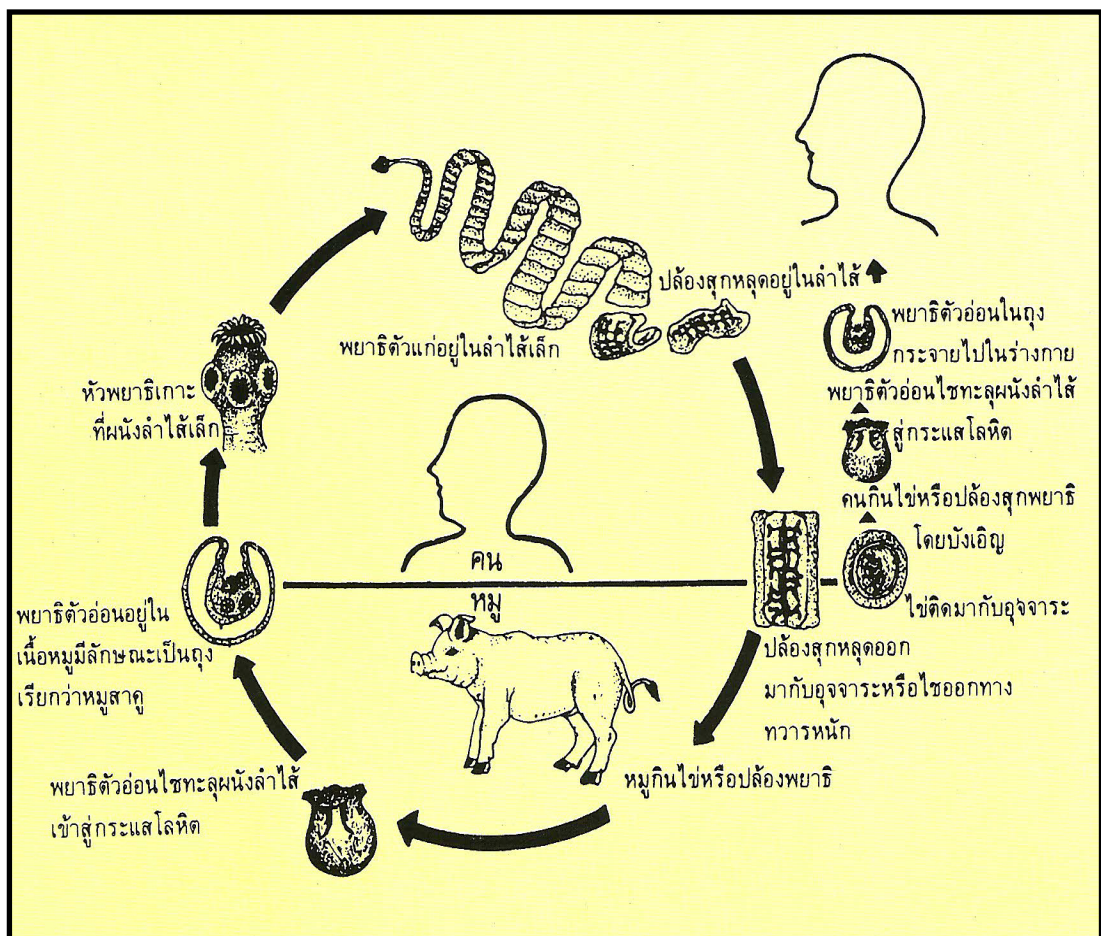 ปล้องสุกหลุดอยู่ในลำไส้
พยาธิตัวแก่อยู่ในลำไส้เล็ก
พยาธิตัวอ่อนในถุง
กระจายไปในร่างกาย
หัวพยาธิเกาะ
ที่ผนังลำไส้เล็ก
พยาธิตัวอ่อนไชทะลุผนังลำไส้
สู่กระแสโลหิต
คนกินไข่หรือปล้องสุกพยาธิ
โดยบังเอิญ
คน
หมู
ไข่ติดมากับอุจจาระ
พยาธิตัวอ่อนอยู่ใน
เนื้อหมูมีลักษณะเป็นถุง
เรียกว่าหมูสาคู
ปล้องสุกหลุดออก
มากับอุจจาระหรือไชออกทาง
ทวารหนัก
หมูกินไข่หรือปล้องพยาธิ
พยาธิตัวอ่อนไชทะลุผนังลำไส้
เข้าสู่กระแสโลหิต